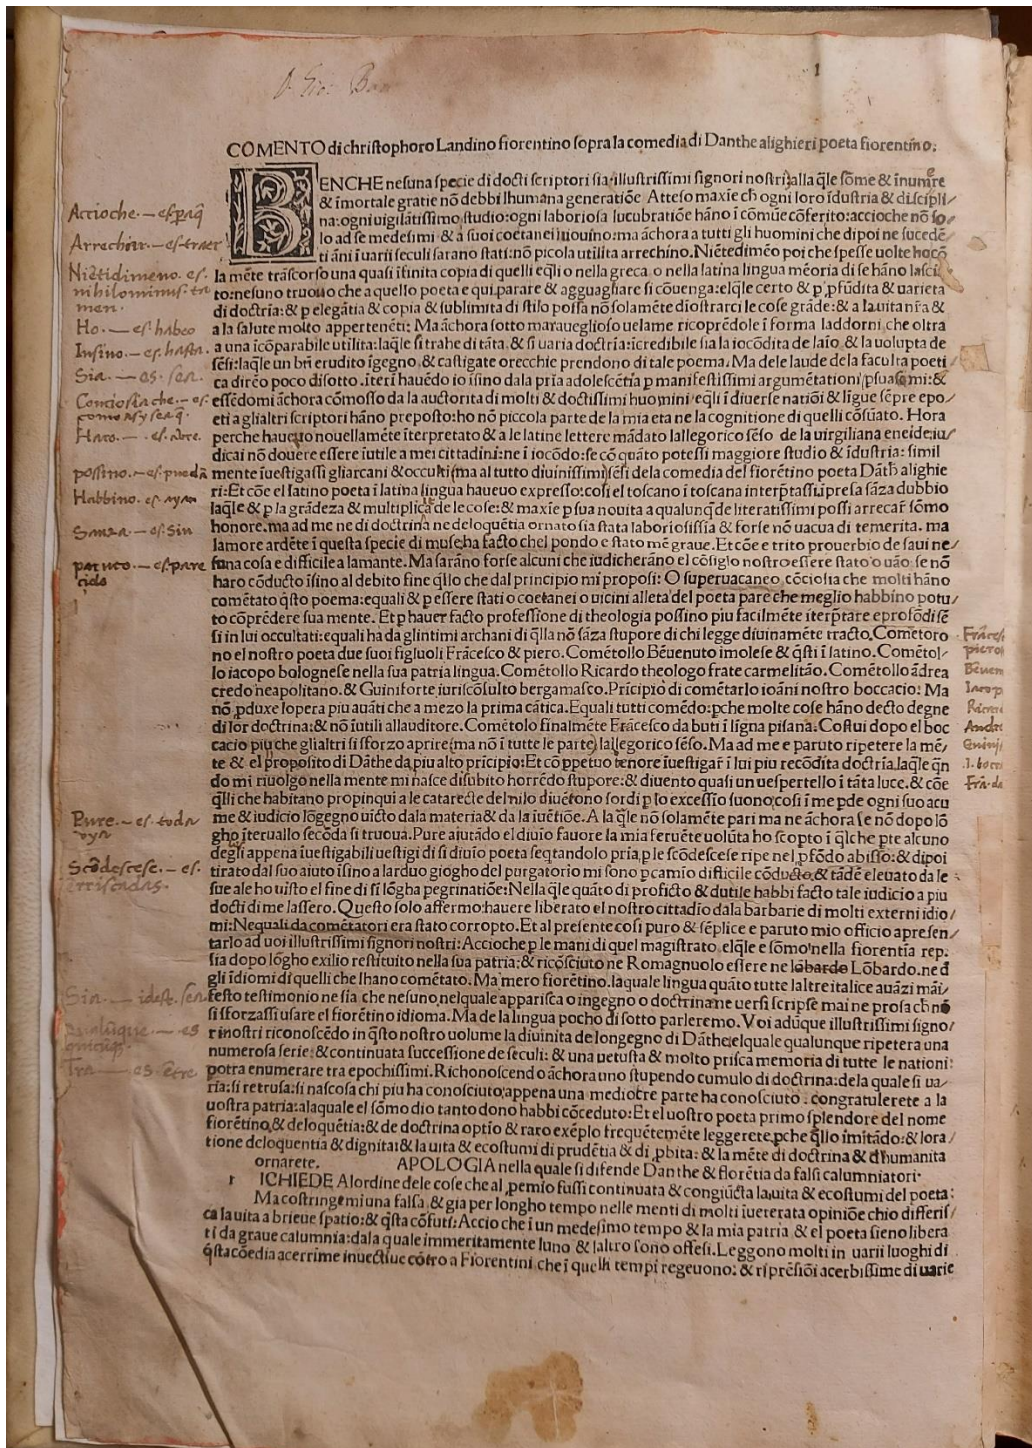 1
COMENTO di christophoro Landino fiorentino sopra la comedia di Danthe alighieri poeta fiorentino.
BENCHE nesuna specie di docti scriptori sia illustrissimi signori nostri alla q̃le sõme & inumre
& imortale gratie nõ debbi lhumana generatiõe Atteso maxie ch̃ ogni loro idustria & discipli/
na: ogni uigilãtissimo studio: ogni laboriosa lucubratiõe hãno i cõmũe cõferito: accioche nõ so/
lo ad se medesimi & a suoi coetanei iuouino: ma ãchora a tutti gli huomini che dipoi ne sucedẽ
ti ãni i uarii seculi sarano stati: nõ picola utilita arrechino. Niẽtedimẽo poi che spesse uolte hocõ
la mẽte trãscorso una quasi ifinita copia di quelli eq̃li o nella greca, o nella latina lingua mẽoria di se hãno lasci
to: nesuno truouo che a quello poeta e qui parare & agguagliare si cõuenga: elq̃le certo & p pfũdita & uarieta
di doctria: & p elegãtia & copia & sublimita di stilo possa nõ solamẽte diostrarci le cose grãde: & a la uita nr̃a &
a la salute molto appertenẽti: Ma ãchora sotto marauegliosо uelame ricoprẽdole i forma laddorni che oltra
a una icõparabile utilita: laq̃le si trahe di tãta, & si uaria doctria: icredibile sia la iocõdita de laio, & la uolupta de
sẽsi: laq̃le un bñ erudito igegno, & castigate orecchie prendono di tale poema. Ma dele laude dela faculta poeti
ca dirẽo poco disotto. iteri hauẽdo io isino dala pria adolescẽtia p manifestissimi argumẽtationi psuasomi: &
essẽdomi ãchora cõmosso da la auctorita di molti & doctissimi huomini eq̃li i diuerse natiõi & ligue sẽpre epo/
eti a glialtri scriptori hãno preposto: ho nõ piccola parte de la mia eta ne la cognitione di quelli cõsũato. Hora
perche haueuo nouellamẽte iterpretato & a le latine lettere mãdato lallegorico sẽso de la uirgiliana eneide: iu/
dicai nõ douere essere iutile a mei cittadini: ne i iocõdo: se cõ quãto potessi maggiore studio & idustria: simil
mente iuestigassi gliarcani & occulti ma al tutto diuinissimi sẽsi dela comedia del fiorẽtino poeta Dãth̃ alighie
ri: Et cõe el latino poeta i latina lingua haueuo expresso: cosi el toscano i toscana interptassi. ipresa sãza dubbio
laq̃le & p la grãdeza & multiplica de le cose: & maxie p sua nouita a qualunq̃ de literatissimi possi arrecar̃ sõmo
honore. ma ad me ne di doctrina ne deloquẽtia ornato sia stata laboriosissia & forse nõ uacua di temerita. ma
lamore ardẽte i questa specie di muse, ha facto chel pondo e stato mẽ graue. Et cõe e trito prouerbio de saui ne/
suna cosa e difficile a lamante. Ma sarãno forse alcuni che iudicherãno el cõsiglo nostro essere stato o uão, se nõ
haro cõducto isino al debito fine q̃llo che dal principio mi proposi: O superuacaneo, cõciosia che molti hãno
comẽtato q̃sto poema: equali & p essere stati o coetanei o uicini alleta del poeta pare che meglio habbino potu/
to cõprẽdere sua mente. Et p hauer facto professione di theologia possino piu facilmẽte iterptare eprofõdi sẽ
si in lui occultati: equali ha da glintimi archani di q̃lla nõ sãza stupore di chi legge diuinamẽte tracto. Comẽtoro
no el nostro poeta due suoi figluoli Frãcesco & piero. Comẽtollo Bẽuenuto imolese & q̃sti i latino. Comẽtol/
lo iacopo bolognese nella sua patria lingua. Comẽtollo Ricardo theologo frate carmelitão. Comẽtollo ãdrea
credo neapolitano. & Guiniforte iuriscõsulto bergamasco. Pricipiò di comẽtarlo ioãni nostro boccacio: Ma
nõ pduxe lopera piu auãti che a mezo la prima cãtica. Equali tutti comẽdo: pche molte cose hãno decto degne
di lor doctrina: & nõ iutili allauditore. Comẽtolo finalmẽte Frãcesco da buti i ligna pisana: Costui dopo el boc
cacio piu che glialtri si sforzo aprire (ma nõ i tutte le parte) lallegorico sẽso. Ma ad me e paruto ripetere la mẽ/
te & el proposito di Dãthe da piu alto pricipio: Et cõ ppetuo tenore iuestigar̃ i lui piu recõdita doctria, laq̃le q̃n
do mi riuolgo nella mente mi nasce disubito horrẽdo stupore: & diuento quasi un uespertello i tãta luce. & cõe
q̃lli che habitano propinqui a le catarecte del nilo diuẽtono sordi p lo excessiuo suono: cosi i me pde ogni suo acu
me & iudicio lõgegno uicto dala materia & da la iuẽtiõe. A la q̃le nõ solamẽte pari ma ne ãchora se nõ dopo lõ
gho iteruallo secõda si truoua. Pure aiutãdo el diuio fauore la mia feruẽte uolũta ho scopto i q̃lche pte alcuno
degli appena iuestigabili uestigi di si diuio poeta seqtandolo pria, p le scõdescese ripe nel pfõdo abisso: & dipoi
tirato dal suo aiuto isino a larduo giogho del purgatorio mi sono p camio disficile cõducto, & tãdẽ eleuato da le
sue ale ho uisto el fine di si lõgha pegrinatiõe: Nella q̃le quãto di proficto & dutile habbi facto tale iudicio a piu
docti di me lassero. Questo solo affermo: hauere liberato el nostro cittadio dala barbarie di molti externi idio/
mi: Ne quali da comẽtatori era stato corropto. Et al presente cosi puro & sẽplice e paruto mio officio apresen/
tarlo ad uoi illustrissimi signori nostri: Accioche p le mani di quel magistrato, elq̃le e sõmo nella fiorentia rep.
sia dopo lõgho exilio restituito nella sua patria: & ricõsciuto ne Romagnuolo essere ne lõbardo Lõbardo. ne d̃
gli idiomi di quelli che lhano comẽtato. Ma mero fiorẽtino. laquale lingua quãto tutte laltre italice auãzi mãi/
festo testimonio ne sia che nesuno, nelquale apparisca o ingegno o doctrina ne uersi scripse mai ne prosa ch̃ nõ
si sforzassi usare el fiorẽtino idioma. Ma de la lingua pocho di sotto parleremo. Voi adũque illustrissimi signo/
ri nostri riconoscẽdo in q̃sto nostro uolume la diuinita de longegno di Dãthe: elquale qualunque ripetera una
numerosa serie: & continuata successione de seculi: & una uetusta & molto prisca memoria di tutte le nationi:
potra enumerare tra epochissimi. Richonoscendo ãchora uno stupendo cumulo di doctrina: dela quale si ua/
ria: si retrusa: si nascosa chi piu ha conosciuto appena una mediocre parte ha conosciuto: congratulerete a la
uostra patria: alaquale el sõmo dio tanto dono habbi cõceduto: Et el uostro poeta primo splendore del nome
fiorẽtino, & deloquẽtia: & de doctrina optio & raro exẽplo frequẽtemẽte leggerete, pche q̃llo imitãdo: & lora/
tione deloquentia & dignita: & la uita & ecostumi di prudẽtia & di pbita: & la mẽte di doctrina & dhumanita
ornarete. APOLOGIA nella quale si difende Danthe & florẽtia da falsi calumniatori.
r ICHIEDE Alordine dele cose che al pemio fussi continuata & congiũcta la uita & ecostumi del poeta:
Ma costringemi una falsa, & gia per longho tempo nelle menti di molti iueterata opiniõe chio differis/
ca la uita a brieue spatio: & q̃sta cõfuti: Accio che i un medesimo tempo & la mia patria & el poeta sieno libera
ti da graue calumnia: dala quale immeritamente luno & laltro sono offesi. Leggono molti in uarii luoghi di
q̃sta cõedia acerrime inuectiue cõtro a Fiorentini che i quelli tempi regeuono: & riprẽsiõi acerbissime di uarie
Accioche. — es paq̃
Arrechoir. — es traer
Niẽtidimeno. es.
nihilominus. ta
men.
Ho. — es habeo
Insino. — es hasta.
Sia. — es. sea.
Conciosiache. — es.
como asy seaq̃.
Haro. — es. abre.
possino. — es puedã
Habbino. es ayan
Sanza. — es. Sin
paruto. — es pare
cido
Pure. — es toda
vya
Scõdescese. — es.
erriscadas.
Sia. — idest. sea
Qualũque. — es
Tra — es. Etre
Frãces
piero
Bẽuen
Iacop
Ricar
Andre
Guini
.I. bocc
Frã. da